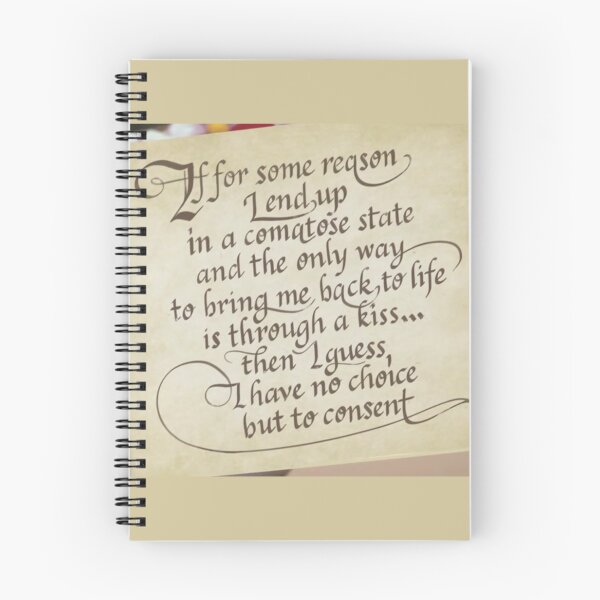 If for some reason
I end up
in a comatose state
and the only way
to bring me back to life
is through a kiss...
then I guess,
I have no choice
but to consent